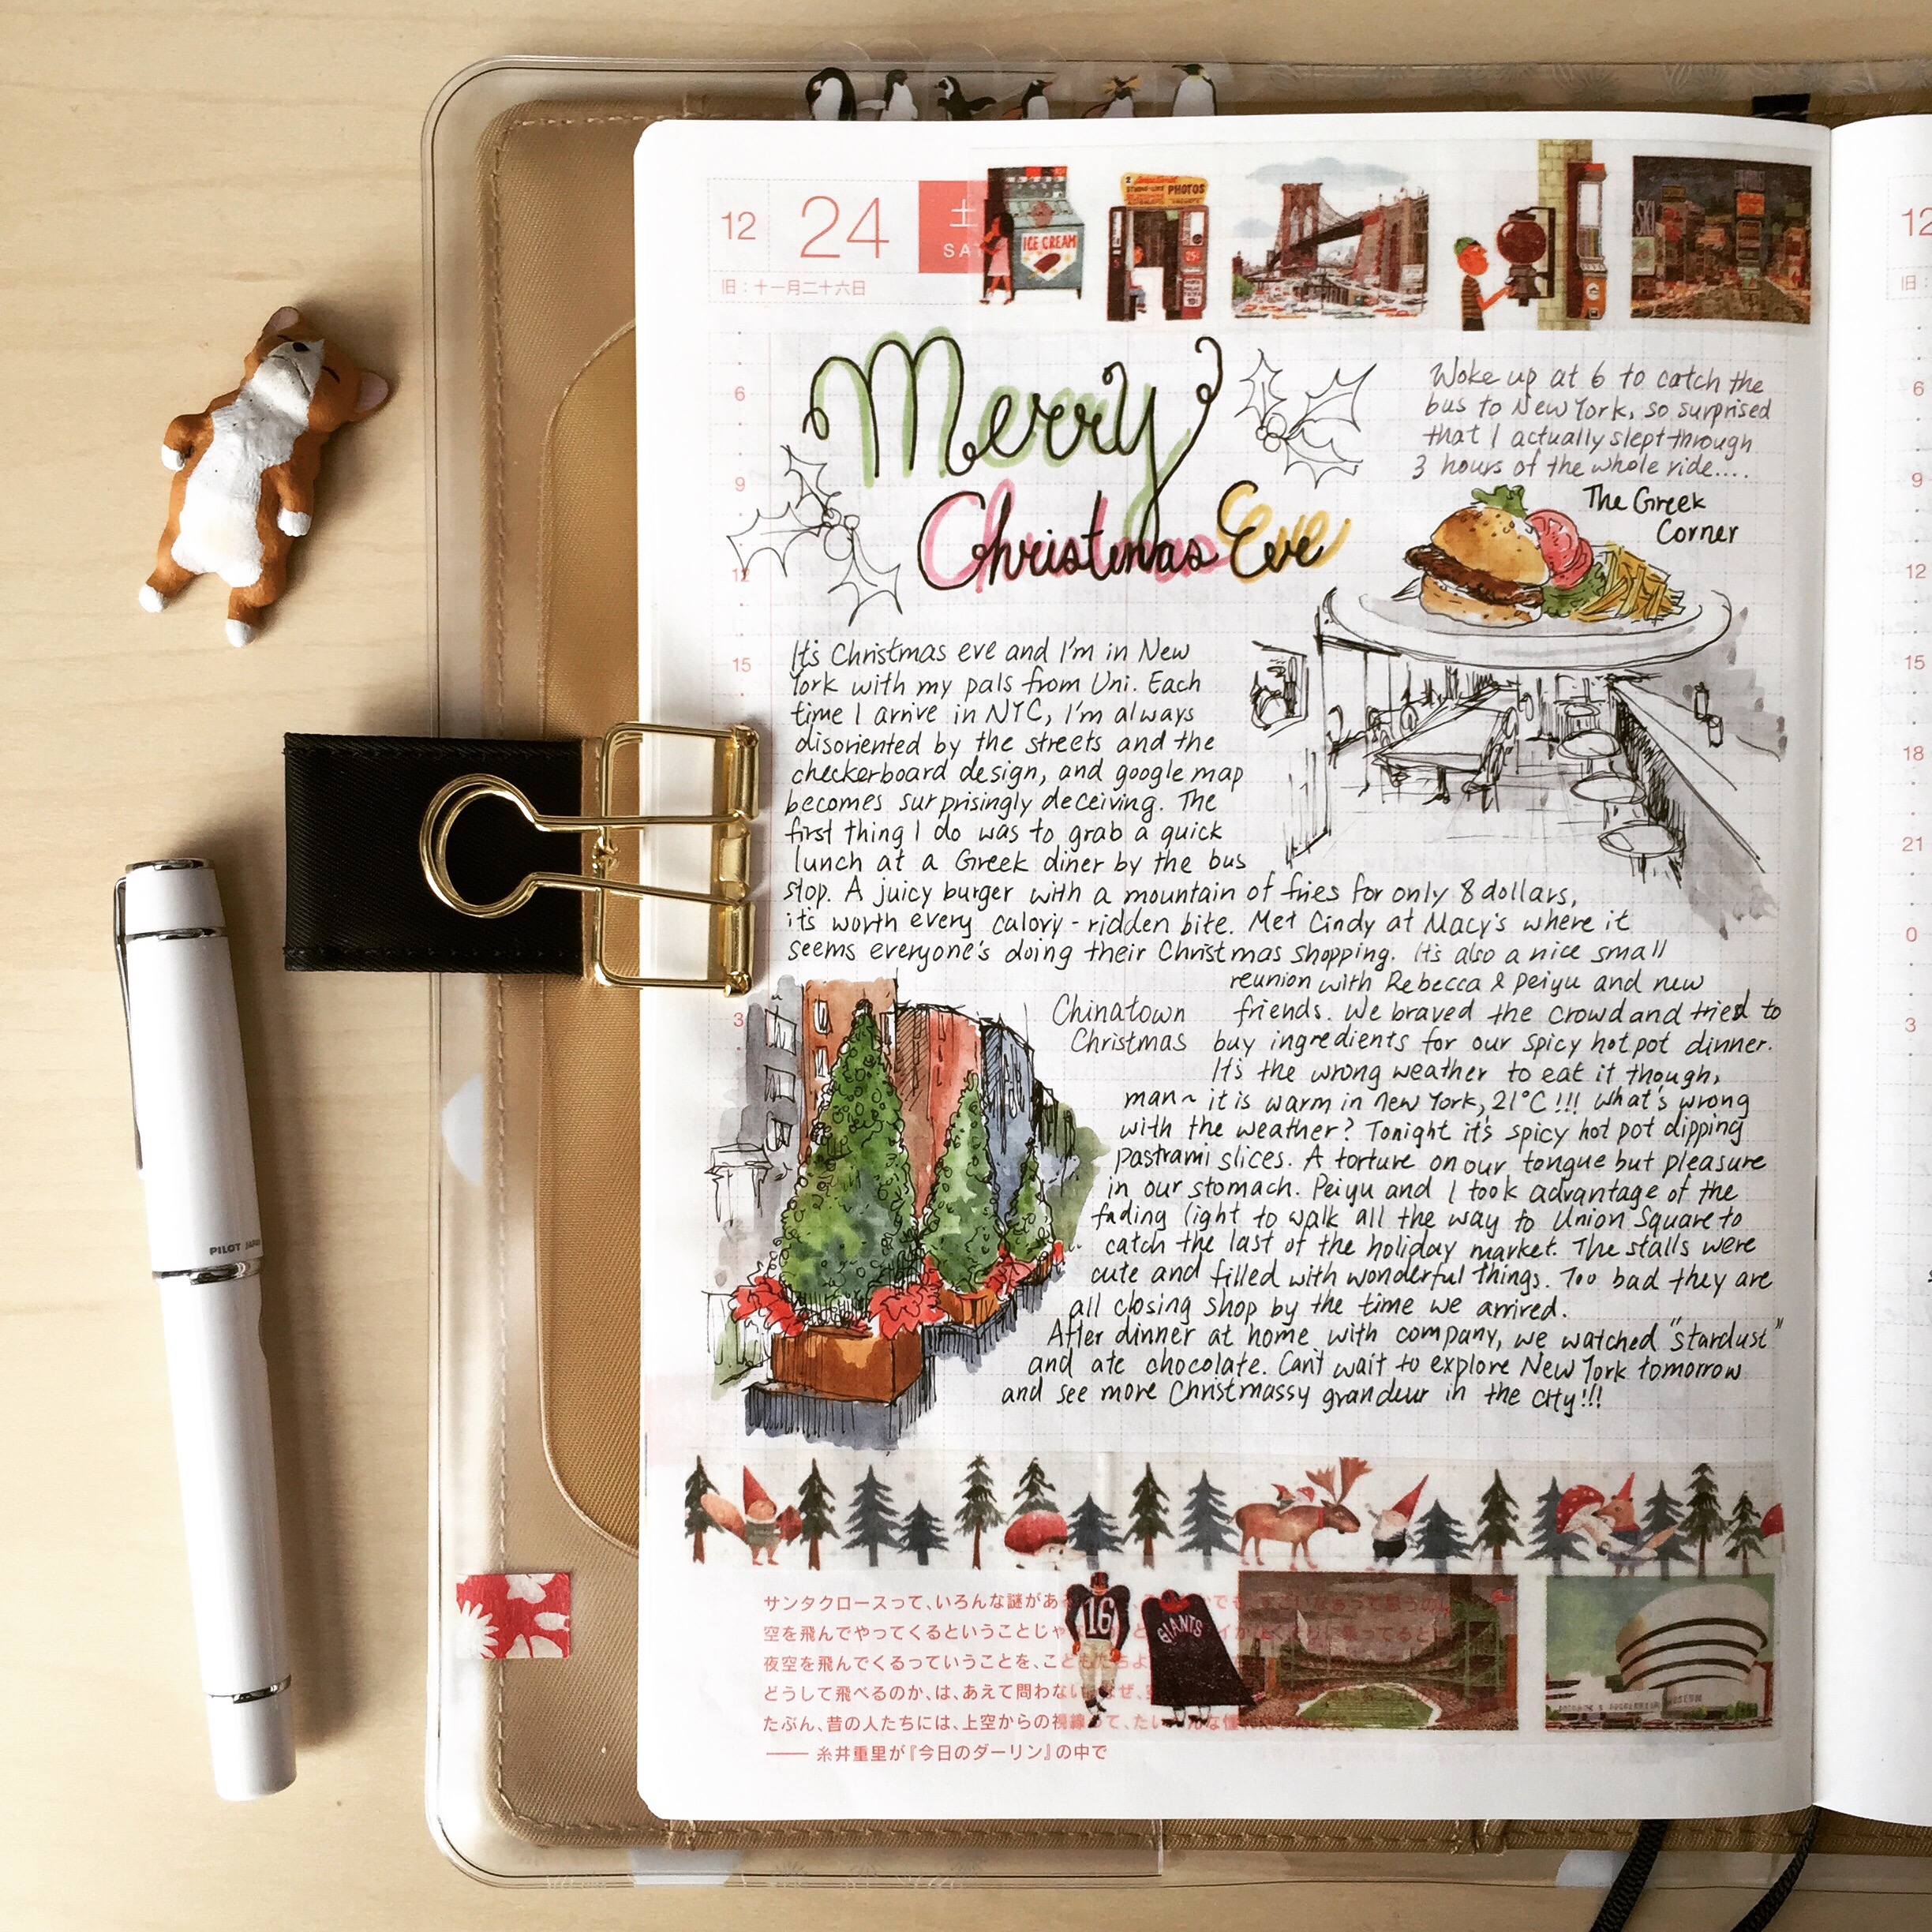 12 24 土
SAT
旧：十一月二十六日
ICE CREAM
PHOTOS
25¢
Merry
Christmas Eve
Woke up at 6 to catch the
bus to New York, so surprised
that I actually slept through
3 hours of the whole ride....
The Greek
Corner
6
9
12
15
3
It's Christmas eve and I'm in New
York with my pals from Uni. Each
time I arrive in NYC, I'm always
disoriented by the streets and the
checkerboard design, and google map
becomes surprisingly deceiving. The
first thing I do was to grab a quick
lunch at a Greek diner by the bus
stop. A juicy burger with a mountain of fries for only 8 dollars,
it's worth every calory-ridden bite. Met Cindy at Macy's where it
seems everyone's doing their Christmas shopping. It's also a nice small
reunion with Rebecca & Peiyu and new
friends. We braved the crowd and tried to
buy ingredients for our spicy hot pot dinner.
It's the wrong weather to eat it though,
man~ it is warm in New York, 21°C!!! What's wrong
with the weather? Tonight it's spicy hot pot dipping
pastrami slices. A torture on our tongue but pleasure
in our stomach. Peiyu and I took advantage of the
fading light to walk all the way to Union Square to
catch the last of the holiday market. The stalls were
cute and filled with wonderful things. Too bad they are
all closing shop by the time we arrived.
After dinner at home with company, we watched "stardust"
and ate chocolate. Can't wait to explore New York tomorrow
and see more Christmassy grandeur in the city!!!
Chinatown
Christmas
16
GIANTS
サンタクロースって、いろんな謎があ
空を飛んでやってくるということじゃ
夜空を飛んでくるっていうことを、こどもたちよ
どうして飛べるのか、は、あえて問わない
たぶん、昔の人たちには、上空からの視線って、たい
── 糸井重里が『今日のダーリン』の中で
PILOT JAPAN
12
旧：
6
9
12
15
18
21
0
3